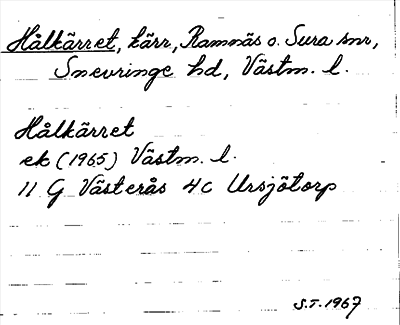 Hålkärret, kärr, Ramnäs o. Sura snr,
Snevringe hd, Västm. l.
Hålkärret
ek (1965) Västm. l.
11 G Västerås 4c Ursjötorp
S.T. 1967